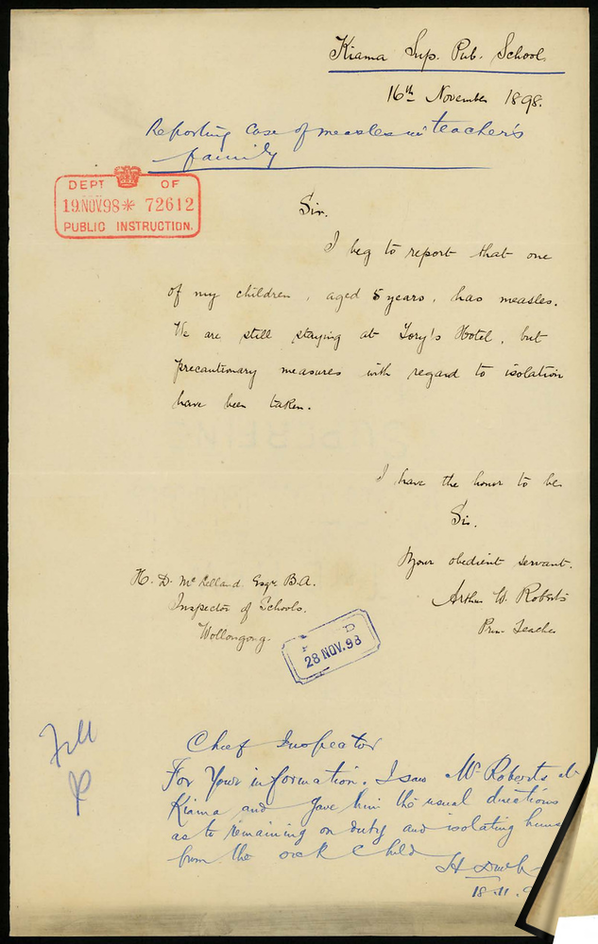 Kiama Sup. Pub. School
16th November 1898.
Reporting case of measles in teacher's
family
DEPT OF
19.NOV.98* 72612
PUBLIC INSTRUCTION.
Sir.
I beg to report that one
of my children, aged 5 years, has measles.
We are still staying at Tory's Hotel, but
precautionary measures with regard to isolation
have been taken.
I have the honor to be
Sir.
Your obedient servant.
Arthur W. Roberts
Prin. Teacher
H. D. McLelland Esqr B.A.
Inspector of Schools.
Wollongong.
28 NOV. 98
Chief Inspector
For Your information. I saw Mr Roberts at
Kiama and gave him the usual directions
as to remaining on duty and isolating
from the sick child
18.11.